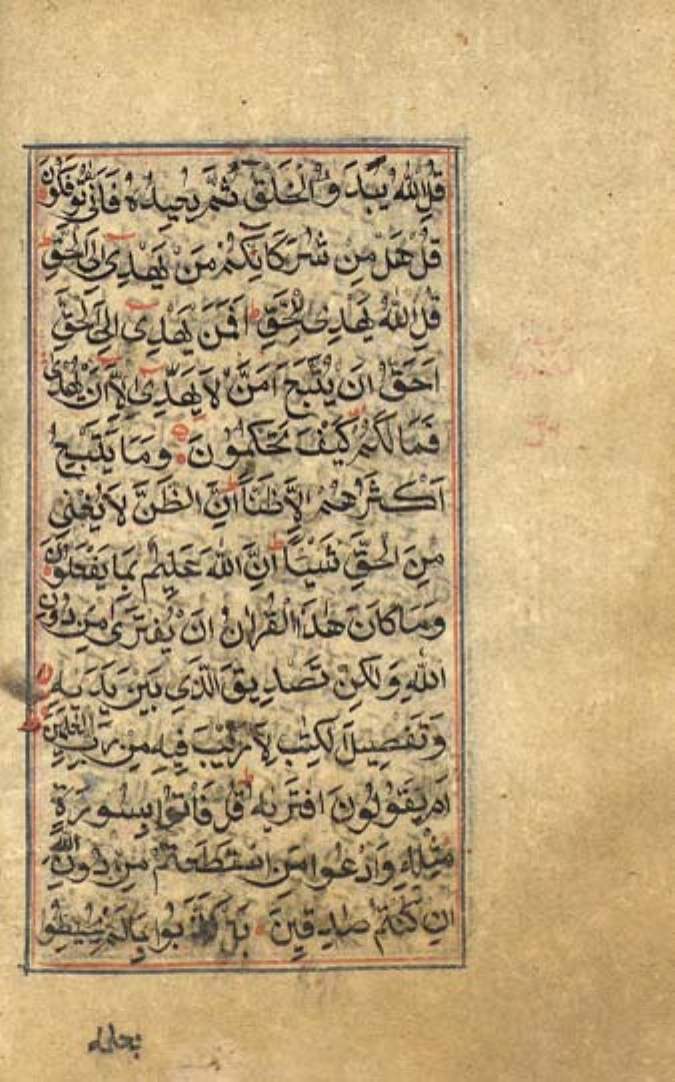 قُلِ اللّٰهُ يَبْدَؤُا الْخَلْقَ ثُمَّ يُعِيدُهُ فَاَنّٰى تُؤْفَكُونَ
قُلْ هَلْ مِنْ شُرَكَائِكُمْ مَنْ يَهْدِى اِلَى الْحَقِّ
قُلِ اللّٰهُ يَهْدِى لِلْحَقِّ اَفَمَنْ يَهْدِى اِلَى الْحَقِّ
اَحَقُّ اَنْ يُتَّبَعَ اَمَّنْ لَا يَهِدِّى اِلَّا اَنْ يُهْدٰى
فَمَا لَكُمْ كَيْفَ تَحْكُمُونَ وَمَا يَتَّبِعُ
اَكْثَرُهُمْ اِلَّا ظَنًّا اِنَّ الظَّنَّ لَا يُغْنِى
مِنَ الْحَقِّ شَيْئًا اِنَّ اللّٰهَ عَلِيمٌ بِمَا يَفْعَلُونَ
وَمَا كَانَ هٰذَا الْقُرْاٰنُ اَنْ يُفْتَرٰى مِنْ دُونِ
اللّٰهِ وَلٰكِنْ تَصْدِيقَ الَّذِى بَيْنَ يَدَيْهِ
وَتَفْصِيلَ الْكِتٰبِ لَا رَيْبَ فِيهِ مِنْ رَبِّ الْعٰلَمِينَ
اَمْ يَقُولُونَ افْتَرٰيهُ قُلْ فَاْتُوا بِسُورَةٍ
مِثْلِهِ وَادْعُوا مَنِ اسْتَطَعْتُمْ مِنْ دُونِ اللّٰهِ
اِنْ كُنْتُمْ صٰدِقِينَ بَلْ كَذَّبُوا بِمَا لَمْ يُحِيطُوا
بعلمه